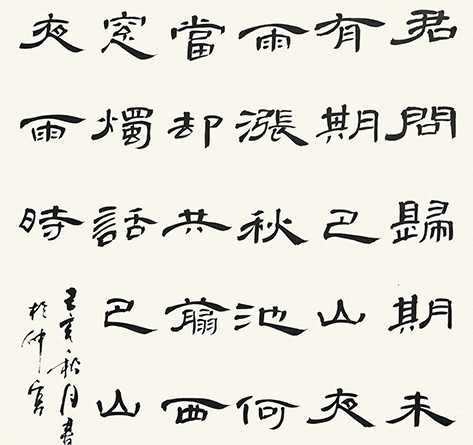 君問歸期未
有期巴山夜
雨漲秋池何
當却共翦西
窓燭話巴山
夜雨時
己亥秋月書
於仲宫